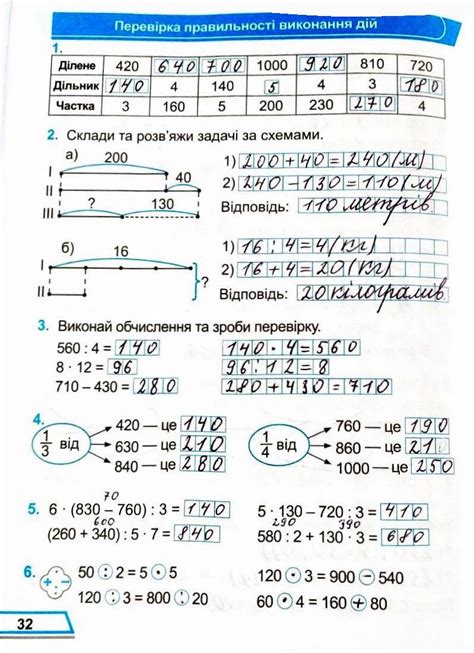 Перевірка правильності виконання дій
1.
Ділене 420 640 700 1000 920 810 720
Дільник 140 4 140 5 4 3 180
Частка 3 160 5 200 230 270 4
2. Склади та розв'яжи задачі за схемами.
а) 200
I
40
II
? 130
III
1) 200+40=240(м)
2) 240-130=110(м)
Відповідь: 110 метрів
б) 16
I
II
?
1) 16:4=4(кг)
2) 16+4=20(кг)
Відповідь: 20 кілограмів.
3. Виконай обчислення та зроби перевірку.
560 : 4 = 140 140·4=560
8 · 12 = 96 96:12=8
710 – 430 = 280 280+430=710
4.
1/3 від
420 — це 140
630 — це 210
840 — це 280
1/4 від
760 — це 190
860 — це 21
1000 — це 250
70
5. 6 · (830 – 760) : 3 = 140 5 · 130 – 720 : 3 = 410
600 290 390
(260 + 340) : 5 · 7 = 840 580 : 2 + 130 · 3 = 680
6. 50 : 2 = 5 · 5 120 · 3 = 900 – 540
120 : 3 = 800 : 20 60 · 4 = 160 + 80
32